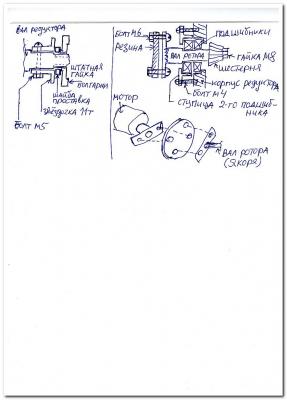 ВАЛ РЕДУКТОРА
ШТАТНАЯ
ГАЙКА
БОЛГАРКИ
ШАЙБА
ПРОСТАВКА
ЗВЁЗДОЧКА 11т
БОЛТ М5
БОЛТ М6
РЕЗИНА
ПОДШИБНИКИ
ВАЛ РОТОРА
ГАЙКА М8
ШЕСТЕРНЯ
корпус редуктора
БОЛТ М4
СТУПИЦА 2-го ПОДШИБ-
НИКА
МОТОР
ВАЛ РОТОРА
(ЯКОРЯ)